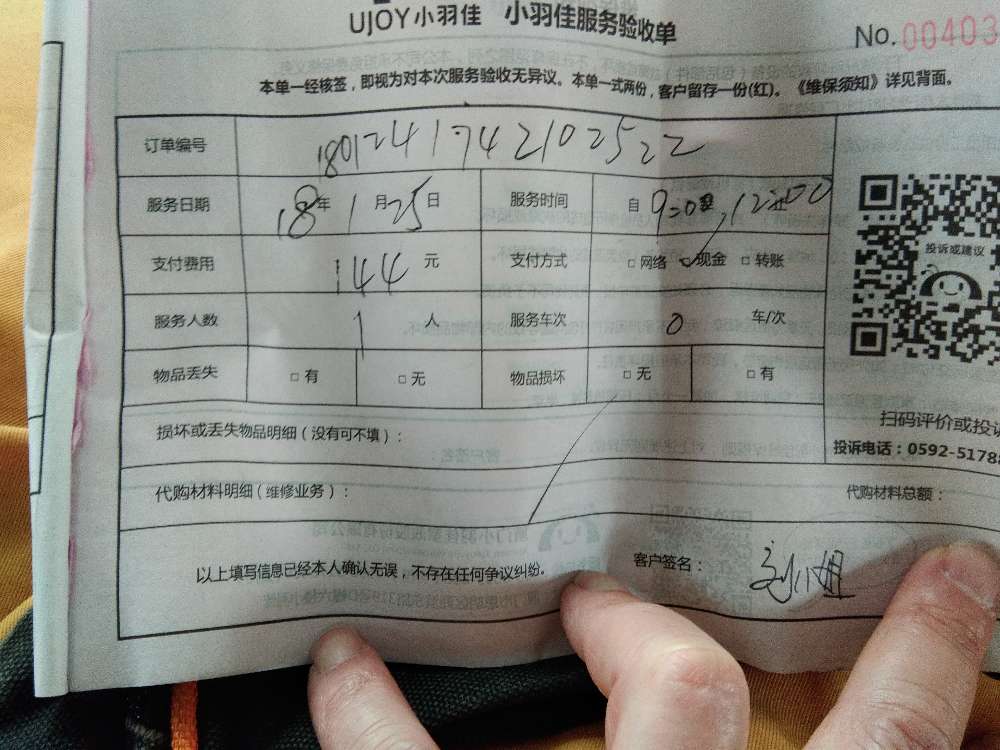 UJOY小羽佳 小羽佳服务验收单
No. 00403
本单一经核签，即视为对本次服务验收无异议。本单一式两份，客户留存一份(红)。《维保须知》详见背面。
订单编号 1801241742102522
服务日期 18年1月25日 服务时间 自 9:00至12:00
支付费用 144元 支付方式 □网络 ☑现金 □转账
服务人数 1人 服务车次 0 车/次
物品丢失 □有 □无 物品损坏 □无 □有
投诉或建议
扫码评价或投诉
投诉电话：0592-5178
损坏或丢失物品明细（没有可不填）：
代购材料明细（维修业务）： 代购材料总额：
以上填写信息已经本人确认无误，不存在任何争议纠纷。 客户签名： 刘小姐